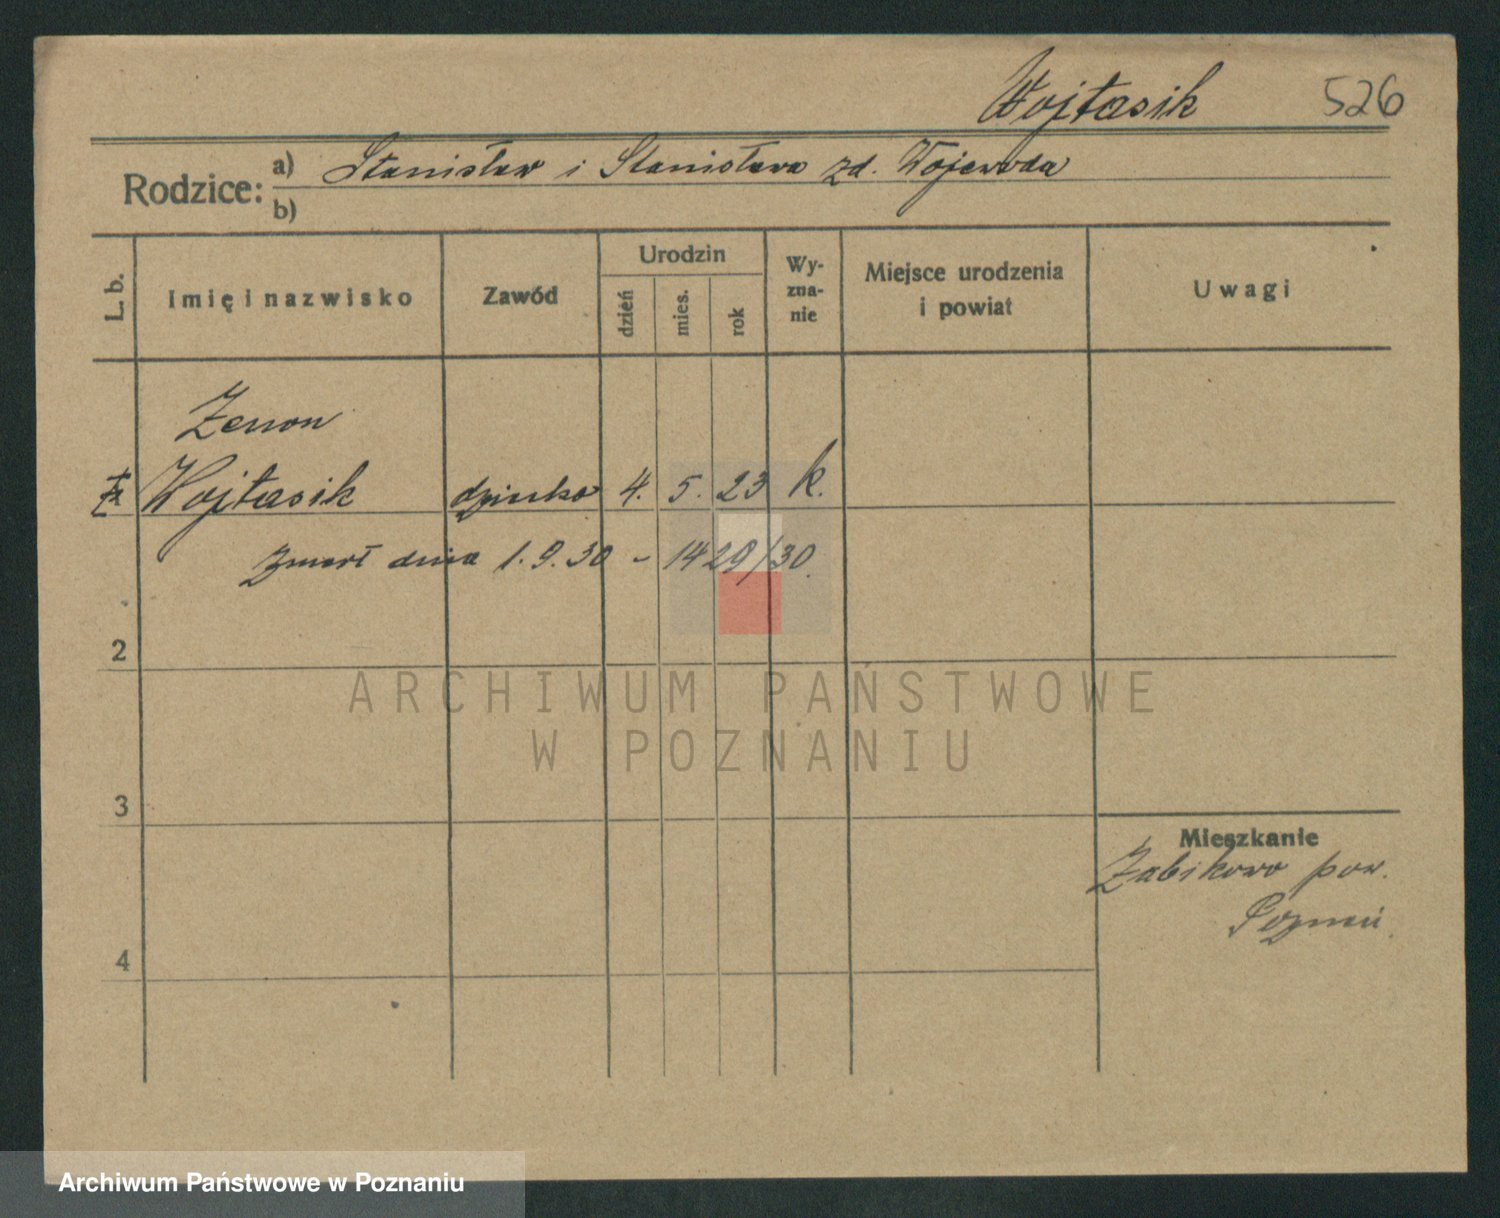 Wojtasik 526
Rodzice: a) Stanisław i Stanisława zd. Wojewoda
b)
L. b. Imię i nazwisko Zawód Urodzin dzień mies. rok Wy-zna-nie Miejsce urodzenia i powiat Uwagi
Zenon
Wojtasik dziecko 4. 5. 23 k.
Zmarł dnia 1.9.30 - 1429/30.
2
ARCHIWUM PAŃSTWOWE
W POZNANIU
3
Mieszkanie
Żabikowo pow.
Poznań
4
Archiwum Państwowe w Poznaniu